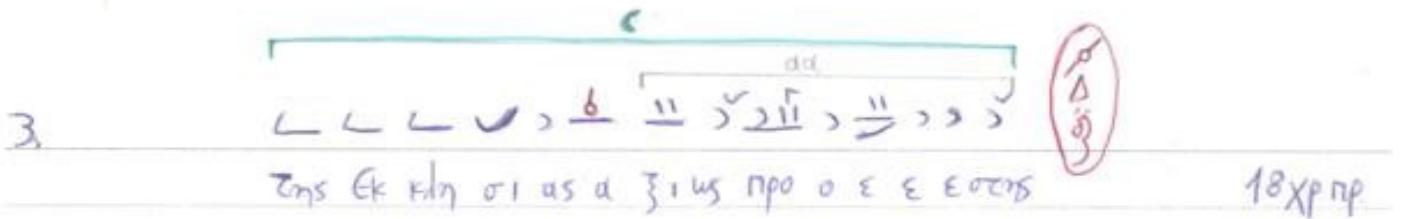 3.
της Εκ κλη σι ας α ξι ως προ ο ε ε ε στης 18χρ πρ.